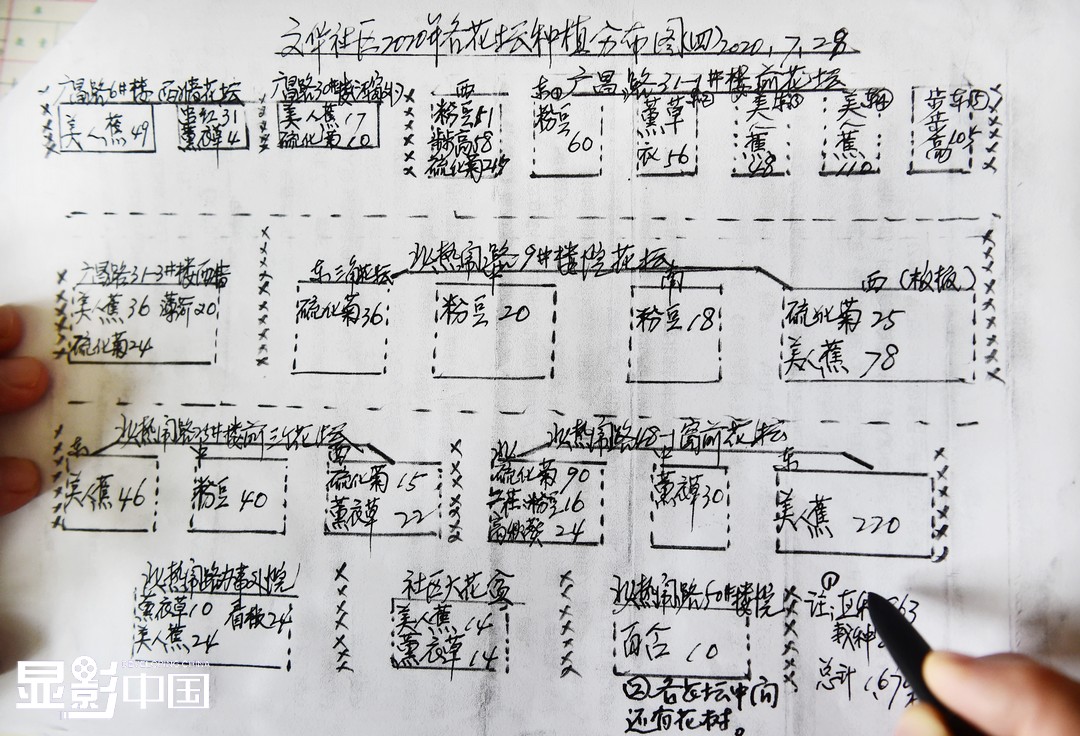 文华社区2020年各花坛种植分布图(四)2020.7.28
广昌路6#楼西墙花坛
美人蕉49
串红31
薰衣草4
广昌路30#楼
美人蕉17
硫化菊10
西
粉豆51
步步高58
硫化菊
东
广昌路31-1#楼前花坛
粉豆
60
薰草
衣56
美人蕉
48
美人蕉
110
步步高
105
广昌路31-3#楼西墙
美人蕉36 薄荷20
硫化菊24
北热闹路9#楼院花坛
东三角花坛
硫化菊36
粉豆20
南
粉豆18
西(
硫化菊25
美人蕉78
北热闹路25#楼前三个花坛
东
美人蕉46
中
粉豆40
西
硫化菊15
薰衣草22
北热闹路48-1窗前花坛
北
硫化菊90
粉豆16
24
中
薰衣草30
东
美人蕉 220
北热闹路办事处院
薰衣草10
24
美人蕉24
社区大花盆
美人蕉14
薰衣草14
北热闹路50#楼院
百合10
注:①
栽种
总计
②各花坛中间
还有花树。
显影中国